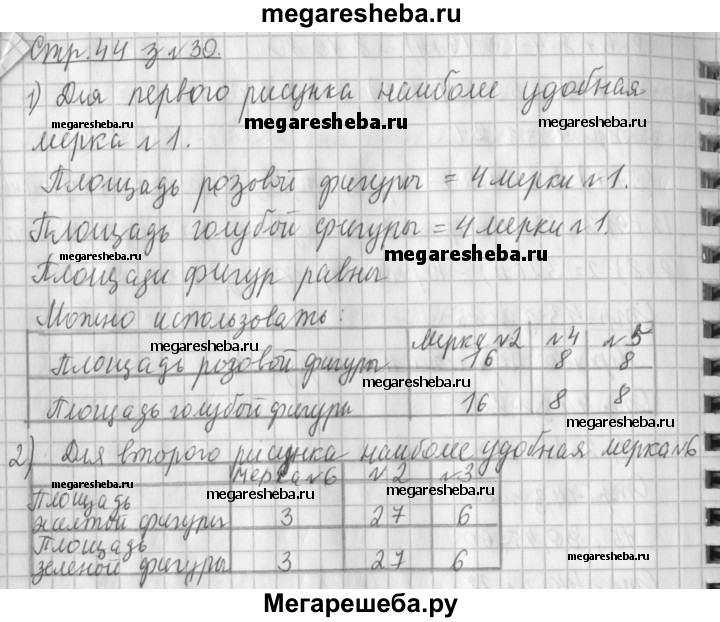 megaresheba.ru
Стр. 44 з №30.
1) Для первого рисунка наиболее удобная
megaresheba.ru megaresheba.ru megaresheba.ru
мерка №1.
Площадь розовой фигуры = 4 мерки №1.
Площадь голубой фигуры = 4 мерки №1.
megaresheba.ru megaresheba.ru
Площади фигур равны
Можно использовать:
megaresheba.ru megaresheba.ru
мерку №2 №4 №5
Площадь розовой фигуры 16 8 8
megaresheba.ru
Площадь голубой фигуры 16 8 8
megaresheba.ru
2) Для второго рисунка наиболее удобная мерка №6
megaresheba.ru megaresheba.ru megaresheba.ru
мерка №6 №2 №3
Площадь желтой фигуры 3 27 6
Площадь зеленой фигуры 3 27 6
megaresheba.ru
Мегарешеба.ру